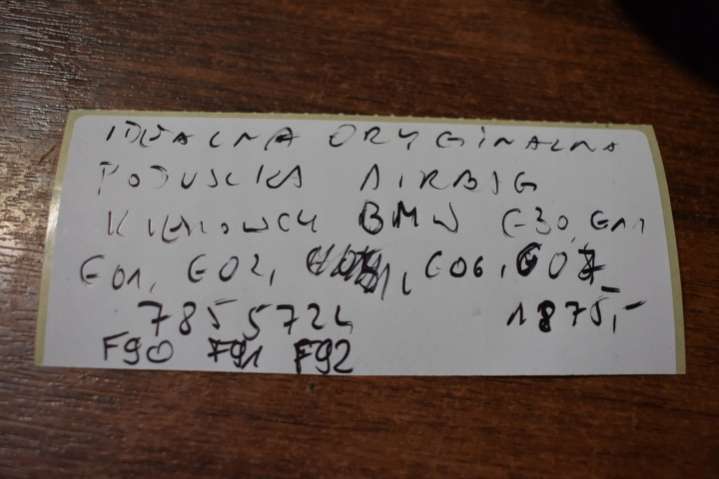 IDEALNA ORYGINALNA
PODUSZKA AIRBAG
KIEROWCY BMW G30, G11
G01, G02, G06, G07
7855724 1875,-
F90 F91 F92